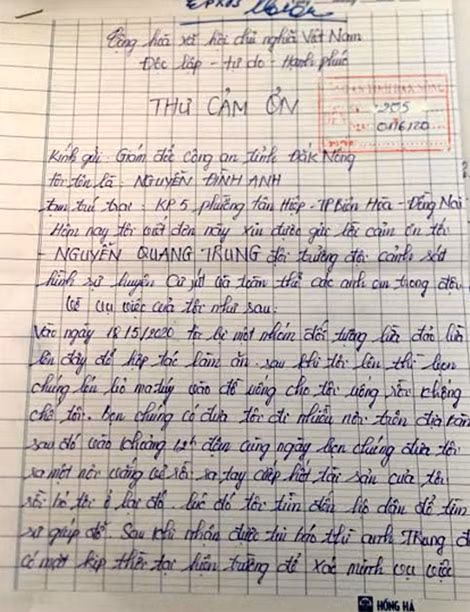 Cộng hoà xã hội chủ nghĩa Việt Nam
Độc lập - tự do - Hạnh phúc
THƯ CẢM ƠN
205
01/6/20
Kính gửi: Giám đốc công an tỉnh Đắk Nông
tôi tên là: NGUYỄN ĐÌNH ANH
tạm trú tại: KP5 phường tân Hiệp - TP Biên Hòa - Đồng Nai
Hôm nay tôi viết đơn này xin được gửi lời cảm ơn tới
- NGUYỄN QUANG TRUNG đội trưởng đội cảnh sát
hình sự huyện Cư jút và toàn thể các anh em trong đội
về vụ việc của tôi như sau:
Vào ngày 18/5/2020 tôi bị một nhóm đối tượng lừa đảo lừa
lên đây để hợp tác làm ăn. sau khi tôi lên thì bọn
chúng lén bỏ ma túy vào đồ uống cho tôi uống rồi khống
chế tôi. bọn chúng có đưa tôi đi nhiều nơi trên địa bàn
sau đó vào khoảng 12h đêm cùng ngày bọn chúng đưa tôi
ra một nơi vắng vẻ rồi ra tay cướp hết tài sản của tôi
rồi bỏ tôi ở lại đó. lúc đó tôi tìm đến hộ dân để tìm
sự giúp đỡ. Sau khi nhận được tin báo thì anh Trung đã
có mặt kịp thời tại hiện trường để xác minh vụ việc
HỒNG HÀ